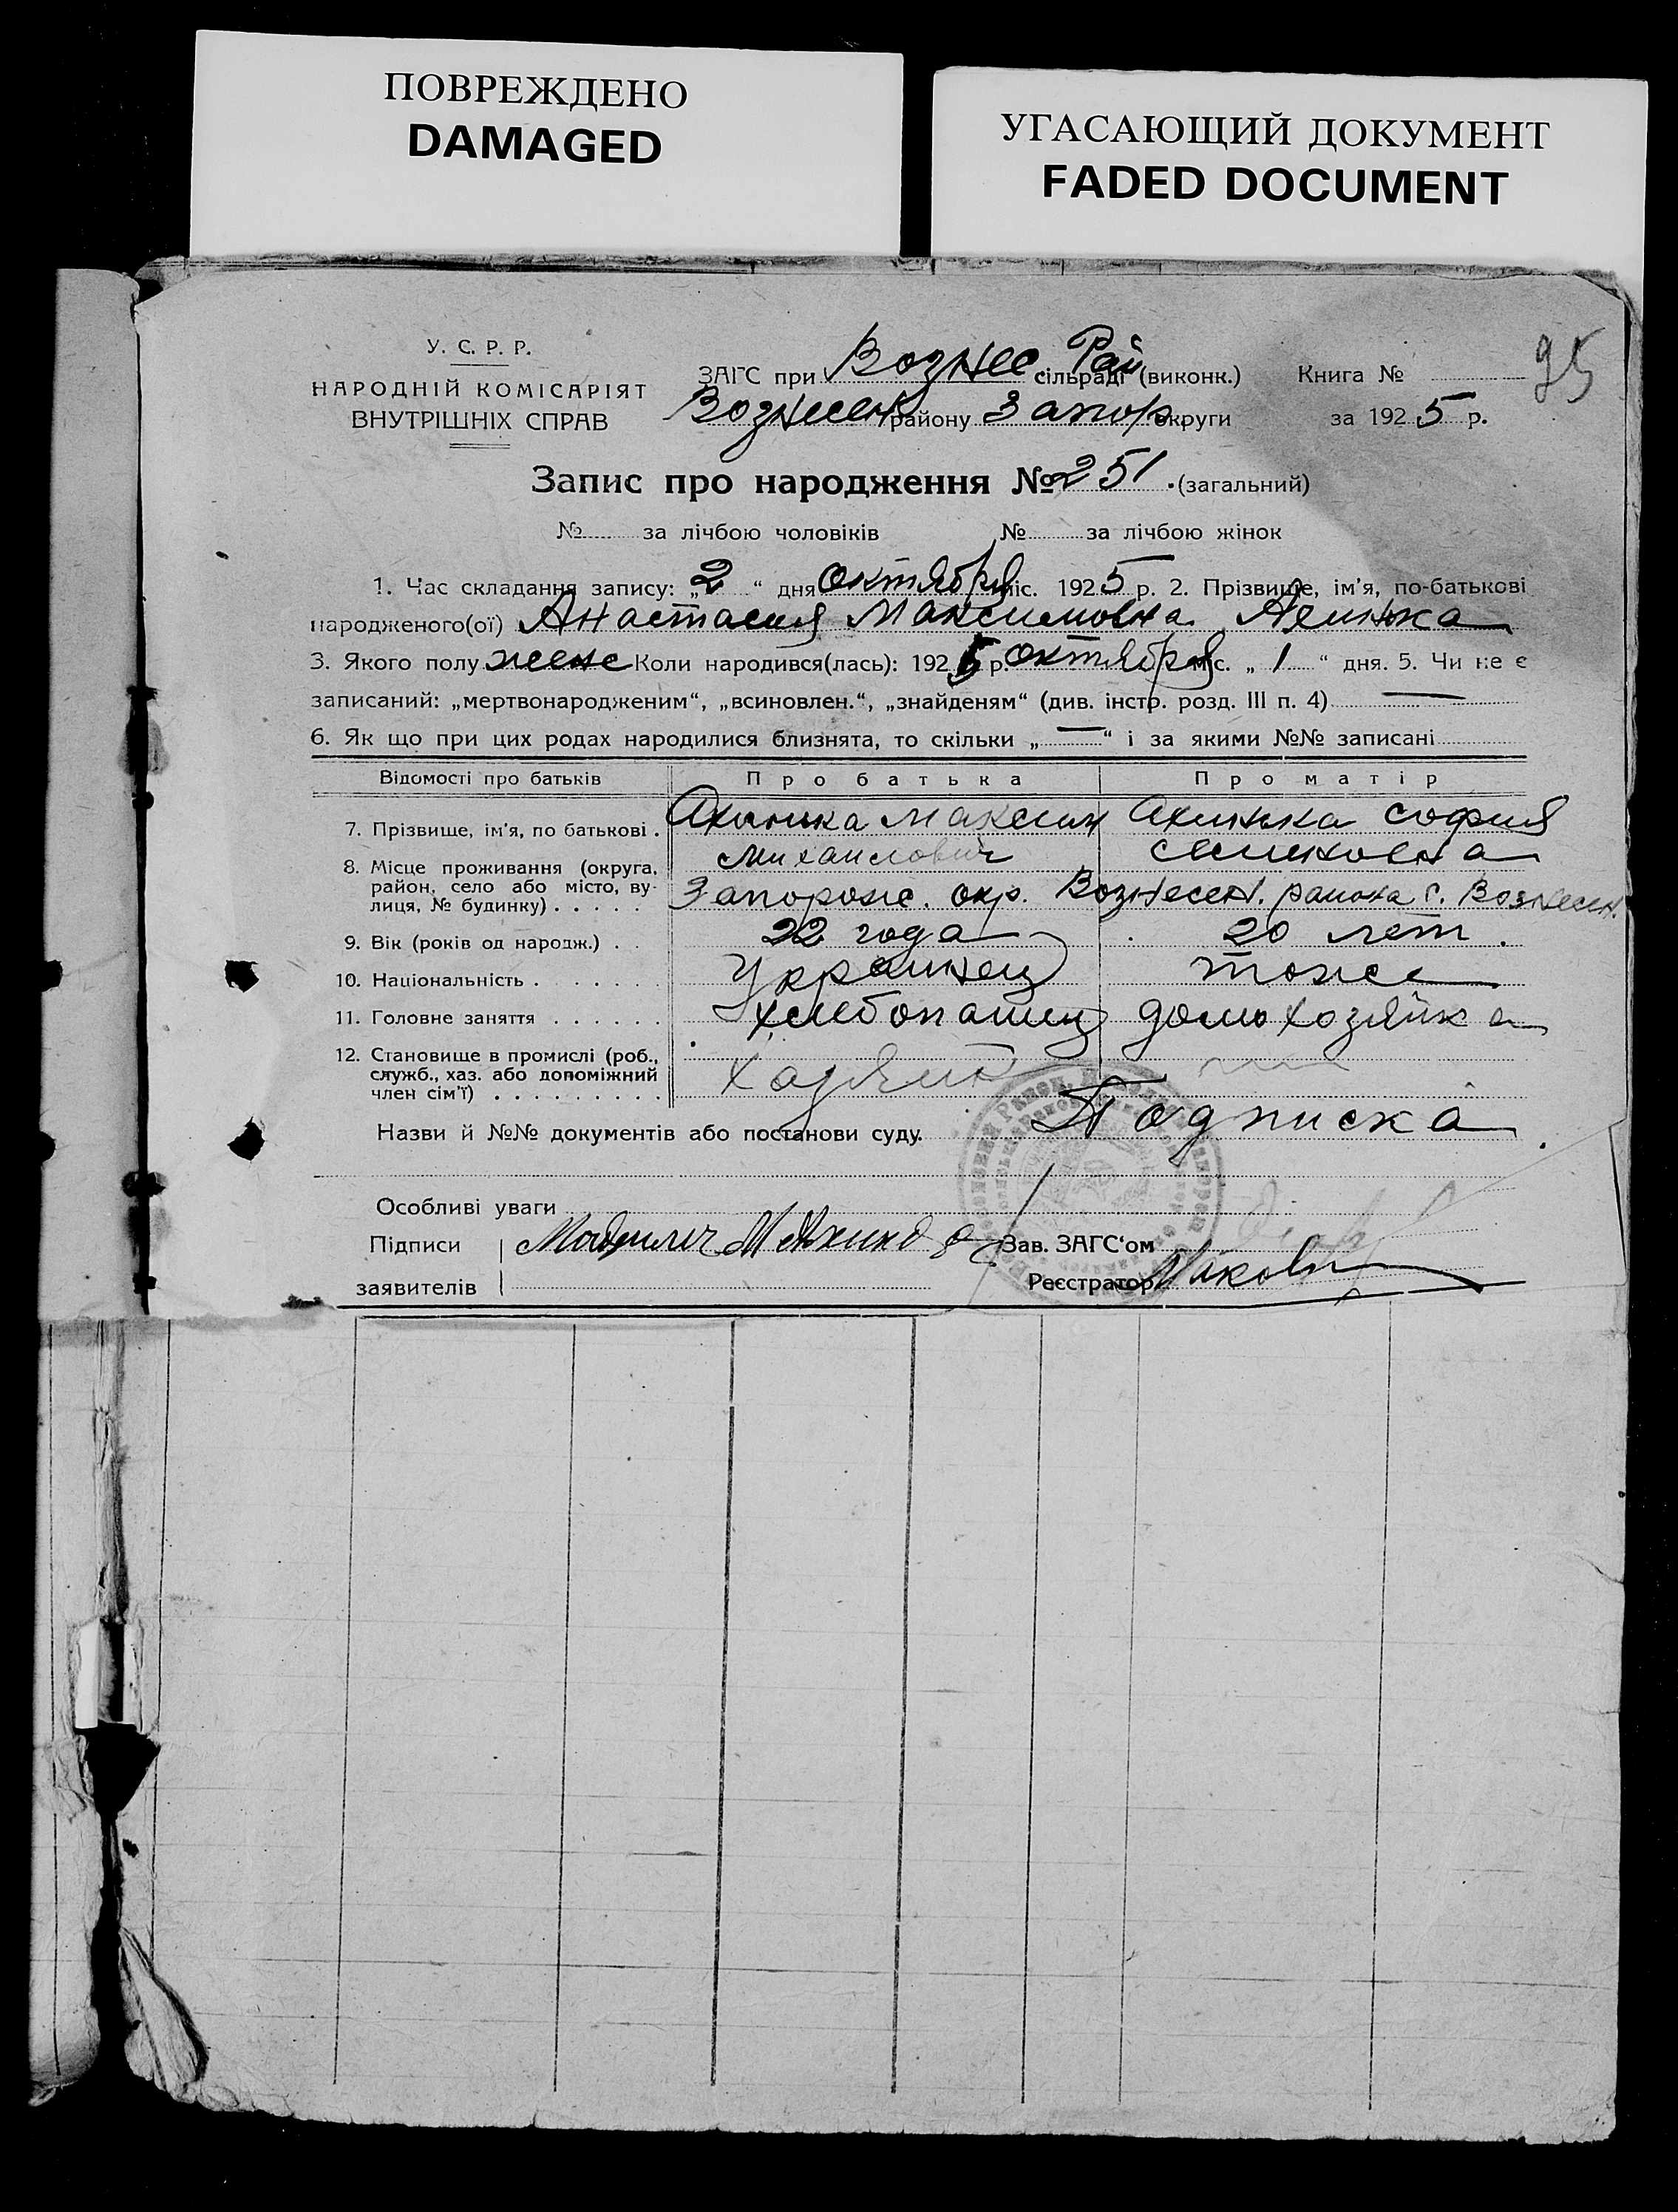 ПОВРЕЖДЕНО
DAMAGED
УГАСАЮЩИЙ ДОКУМЕНТ
FADED DOCUMENT
95
У. С. Р. Р.
НАРОДНІЙ КОМІСАРІЯТ
ВНУТРІШНІХ СПРАВ
ЗАГС при Вознес Рай сільраді (виконк.) Книга №
Вознесен району Запор округи за 1925 р.
Запис про народження № 251. (загальний)
№ за лічбою чоловіків № за лічбою жінок
1. Час складання запису: „2“ дня октября міс. 1925 р. 2. Прізвище, ім'я, по-батькові
народженого(ої) Анастасия Максимовна
3. Якого полу женс Коли народився(лась): 1925 р. октября міс. „1“ дня. 5. Чи не є
записаний: „мертвонародженим“, „всиновлен.“, „знайденям“ (див. інстр. розд. III п. 4) —
6. Як що при цих родах народилися близнята, то скільки „—“ і за якими №№ записані
Відомості про батьків Про батька Про матір
7. Прізвище, ім'я, по батькові . Максим София
Михаилович
8. Місце проживання (округа, район, село або місто, вулиця, № будинку) . . . . . Запорож. окр. Вознесен. района с. Вознесен.
9. Вік (років од народж.) . . 22 года 20 лет.
10. Національність . . . . . . . Украинец тоже
11. Головне заняття . . . . . . хлебопашец домохозяйка
12. Становище в промислі (роб., служб., хаз. або допоміжний член сім'ї) . . . . . . . . . Хозяин
Назви й №№ документів або постанови суду. Подписка.
Особливі уваги
Підписи заявителів
Зав. ЗАГС'ом
Реєстратор